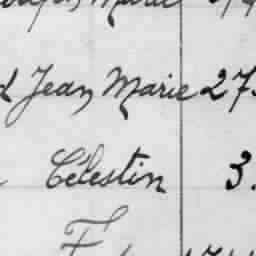 Marie
d Jean Marie 27
Célestin 3.
F